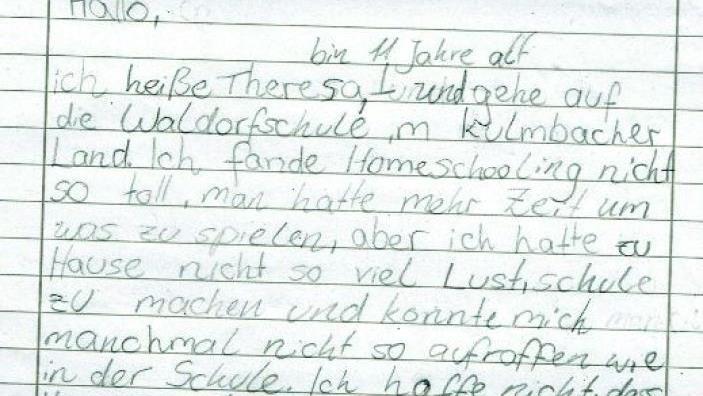 Hallo,
bin 11 Jahre alt
ich heiße Theresa, und gehe auf
die Waldorfschule im Kulmbacher
Land. Ich fande Homeschooling nicht
so toll, man hatte mehr Zeit um
was zu spielen, aber ich hatte zu
Hause nicht so viel Lust, schule
zu machen und konnte mich
manchmal nicht so aufraffen wie
in der Schule. Ich hoffe nicht, das